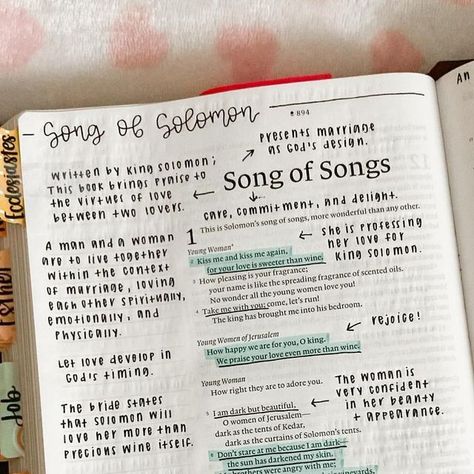 Song of Solomon
894
Presents marriage
as God's design.
Written by King Solomon;
This book brings praise to
the virtues of love
between two lovers.
Song of Songs
care, commitment, and delight.
1
This is Solomon's song of songs, more wonderful than any other.
A man and a woman
are to live together
within the context
of marriage, loving
each other spiritually,
emotionally, and
physically.
Let love develop in
God's timing.
The bride states
that Solomon will
love her more than
precious wine itself.
Young Woman
2 Kiss me and kiss me again,
for your love is sweeter than wine.
3 How pleasing is your fragrance;
your name is like the spreading fragrance of scented oils.
No wonder all the young women love you!
4 Take me with you; come, let's run!
The king has brought me into his bedroom.
she is professing
her love for
King Solomon.
Young Women of Jerusalem
How happy we are for you, O king.
We praise your love even more than wine.
rejoice!
Young Woman
How right they are to adore you.
5 I am dark but beautiful,
O women of Jerusalem—
dark as the tents of Kedar,
dark as the curtains of Solomon's tents.
6 Don't stare at me because I am dark—
the sun has darkened my skin.
brothers were angry with me;
The woman is
very confident
in her beauty
+ appearance.
Ecclesiastes
Esther
Job
AN